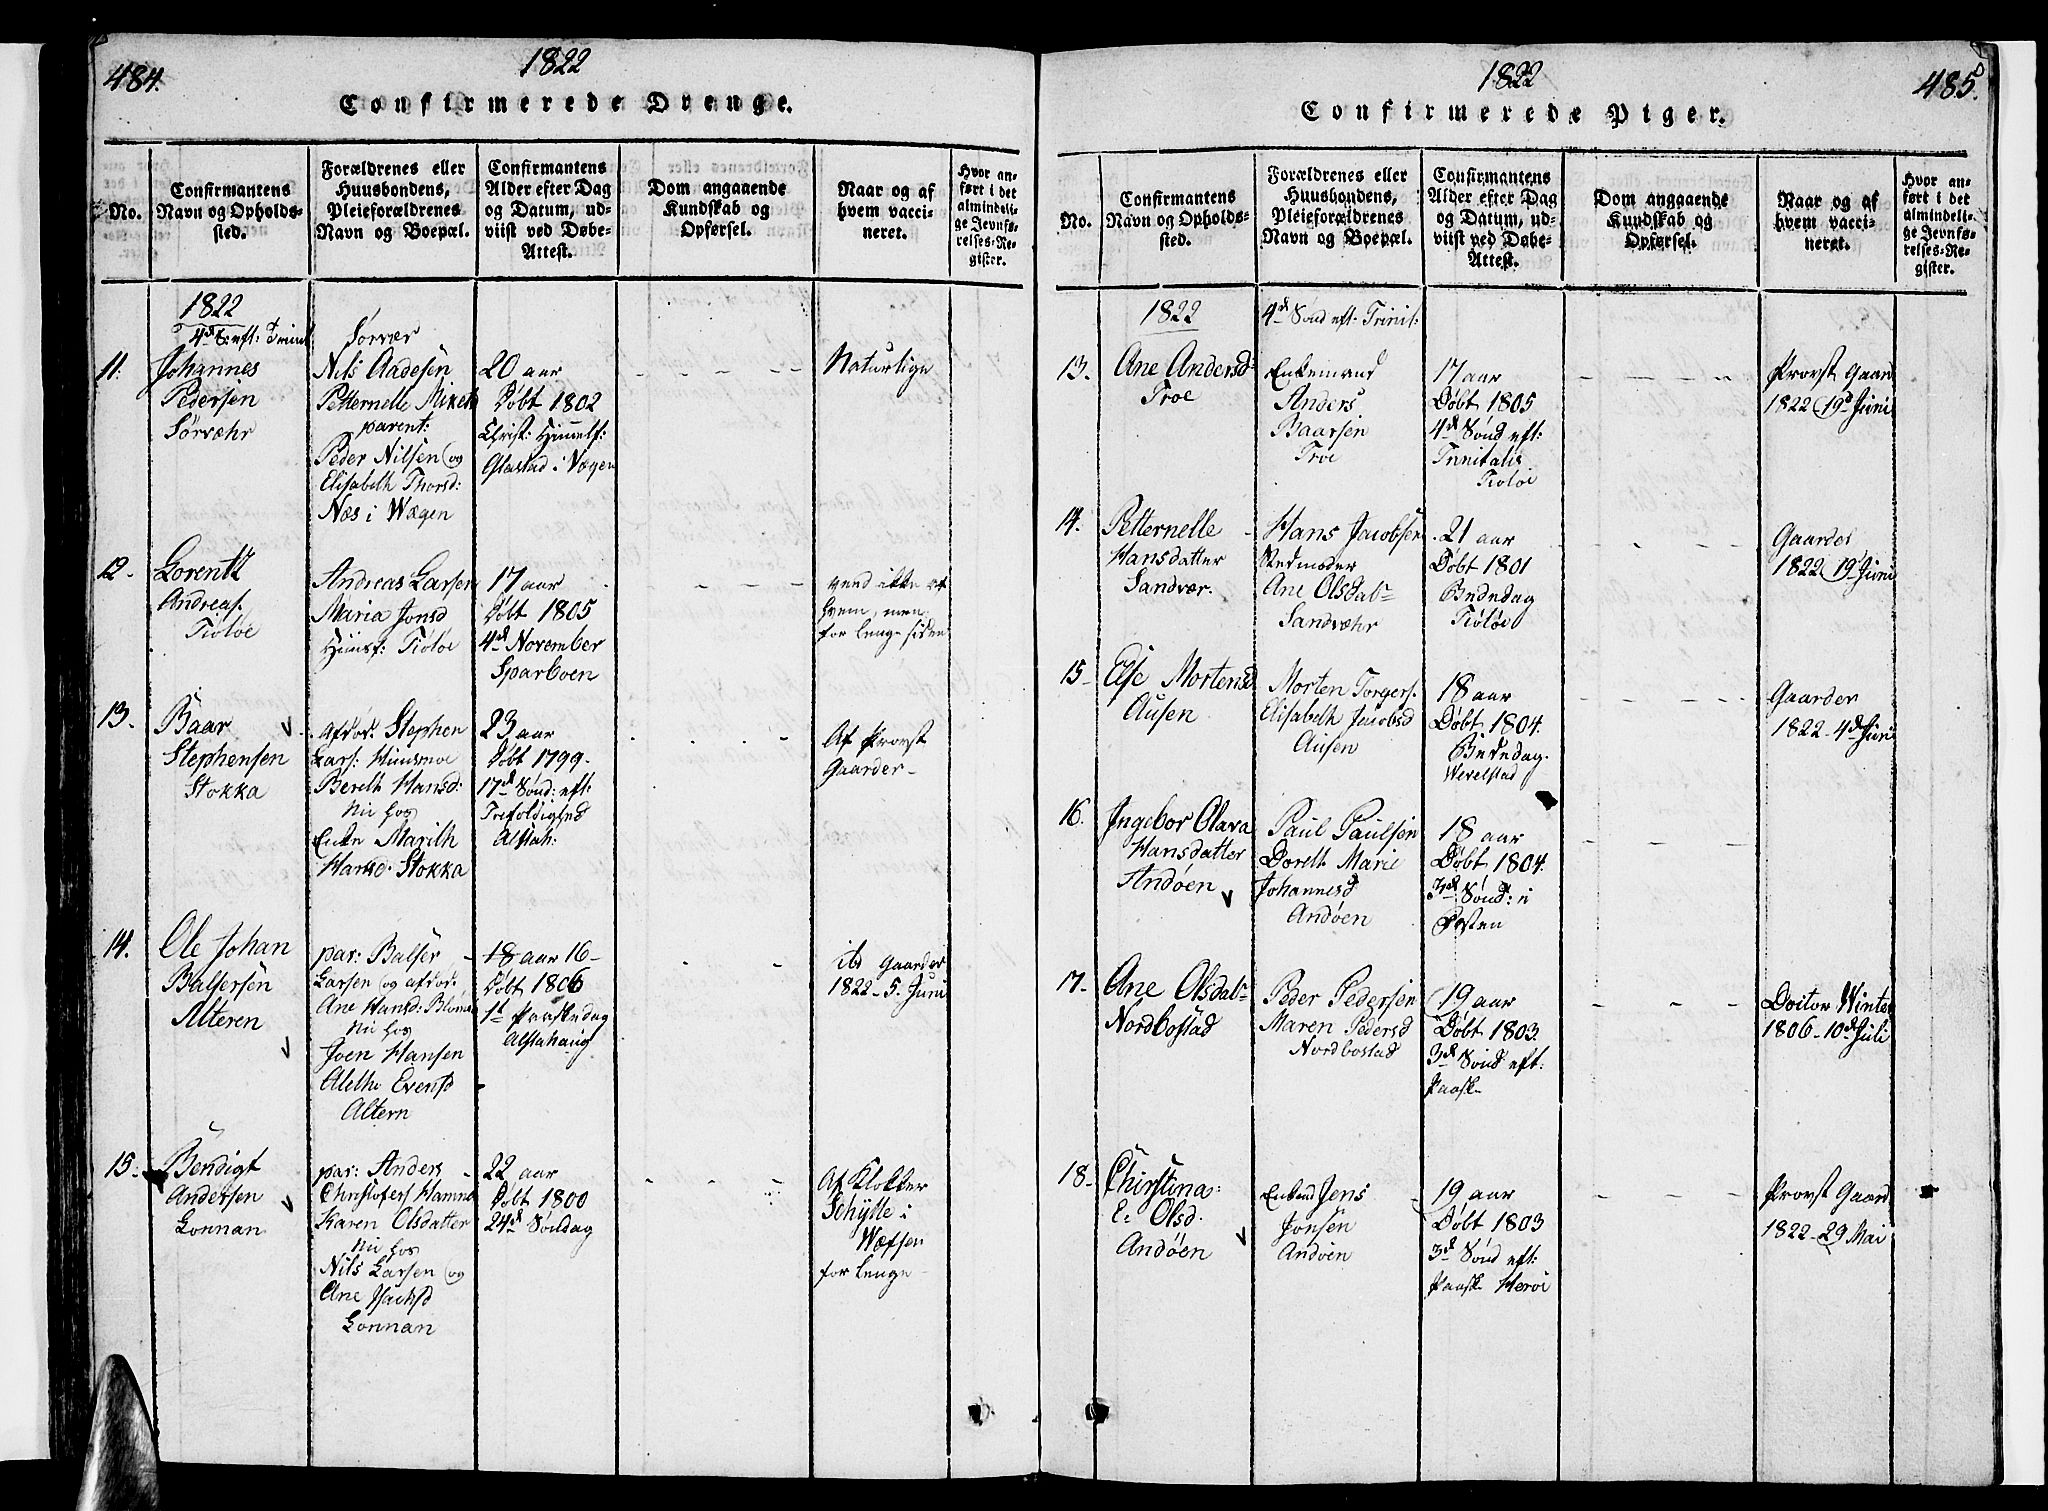 484.
1822
Confirmerede Drenge.
No.
Confirmantens
Navn og Opholds-
sted.
Forældrenes eller
Huusbondens,
Pleieforældrenes
Navn og Boepæl.
Confirmantens
Alder efter Dag
og Datum, ud-
viist ved Døbe-
Attest.
Dom angaaende
Kundskab og
Opførsel.
Naar og af
hvem vacci-
neret.
Hvor an-
ført i det
almindeli-
ge Jevnfø-
relses-Re-
gister.
1822
4de S: eft: Trinit
11.
Johannes
Pedersen
Sörvæhr
Sörvær
Nils Aadesen
Petternelle Mikels
parent:
Peder Nilsen og
Elisabeth Thorsd:
Næs i Wægen
20 aar
Döbt 1802
Christ: Himmelf:
Glastad i Vægen
Naturlige
12.
Lorentz
Andreas.
Tiötöe
Andreas Larsen
Maria Jonsd
Huusf: Tiötöe
17 aar
Döbt 1805
4de November
Sparboen
veed ikke af
hvem, men
for lenge siden
13.
Baar
Stephensen
Stokka
Afdød. Stephen
Lars: Huusmoe
Bereth Hansd:
nu hos
Enke Marith
Hansd. Stokka
23 aar
Döbt 1799.
17de Sönd: eft:
Trefoldighed
Alstah:
Af Provst
Gaarder
14.
Ole Johan
Balsersen
Alteren
par: Balser
Larsen og afdød.
Ane Hansd: Blomsö
nu hos
Joen Hansen
Alethe Evensd
Altern
18 aar 16
Döbt 1806
1st Paaskedag
Alstahaug
ibd Gaarder
1822 - 5. Juni
15.
Bendigt
Andersen
Lonnan
par: Anders
Christofers Hamnö
Karen Olsdatter
nu hos
Nils Larsen og
Ane Isachsd
Lonnan
22 aar
Döbt 1800
24de Söndag
Af Klokker
Schytte i
Wefsen
for lenge
485.
1822
Confirmerede Piger.
No.
Confirmantens
Navn og Opholds-
sted.
Forældrenes eller
Huusbondens,
Pleieforældrenes
Navn og Boepæl.
Confirmantens
Alder efter Dag
og Datum, ud-
viist ved Døbe-
Attest.
Dom angaaende
Kundskab og
Opførsel.
Naar og af
hvem vacci-
neret.
Hvor an-
ført i det
almindeli-
ge Jevnfø-
relses-Re-
gister.
1822
4de Sönd eft: Trinit:
13.
Ane Andersd:
Troe
Enkemand
Anders
Baarsen
Troe
17 aar
Döbt 1805
4de Sönd eft:
Trinitatis
Tiötöe
Provst Gaard
1822 19d Juni
14.
Petternelle
Hansdatter
Sandvær.
Hans Jacobsen
Stedmoder
Ane Olsdatr
Sandvæhr
21 aar
Döbt 1801
Bededag
Tiötöe
Gaarder
1822 19 Juni
15.
Else Mortensd
Ausen
Morten Torgers.
Elisabeth Jacobsd
Ausen
18 aar
Döbt 1804.
Bededag.
Wevelstad
Gaarder
1822 - 4de Juni
16.
Ingebor Olava
Hansdatter
Andöen
Paul Paulsen
Doreth Marie
Johannesd
Andöen
18 aar
Döbt 1804.
3de Sönd: i
Fasten
17.
Ane Olsdatr
Nordbostad
Peder Pedersen
Maren Pedersd
Nordbostad
19 aar
Döbt 1803.
3de Sönd eft:
Paask
Doctor Winter
1806 - 10de Juli
18.
Christina:
E: Olsd.
Andöen
Enkemd Jens
Jonsen
Andöen
19 aar
Döbt 1803
3de Sönd eft:
Paask Heröi
Provst Gaard
1822 - 29 Mai